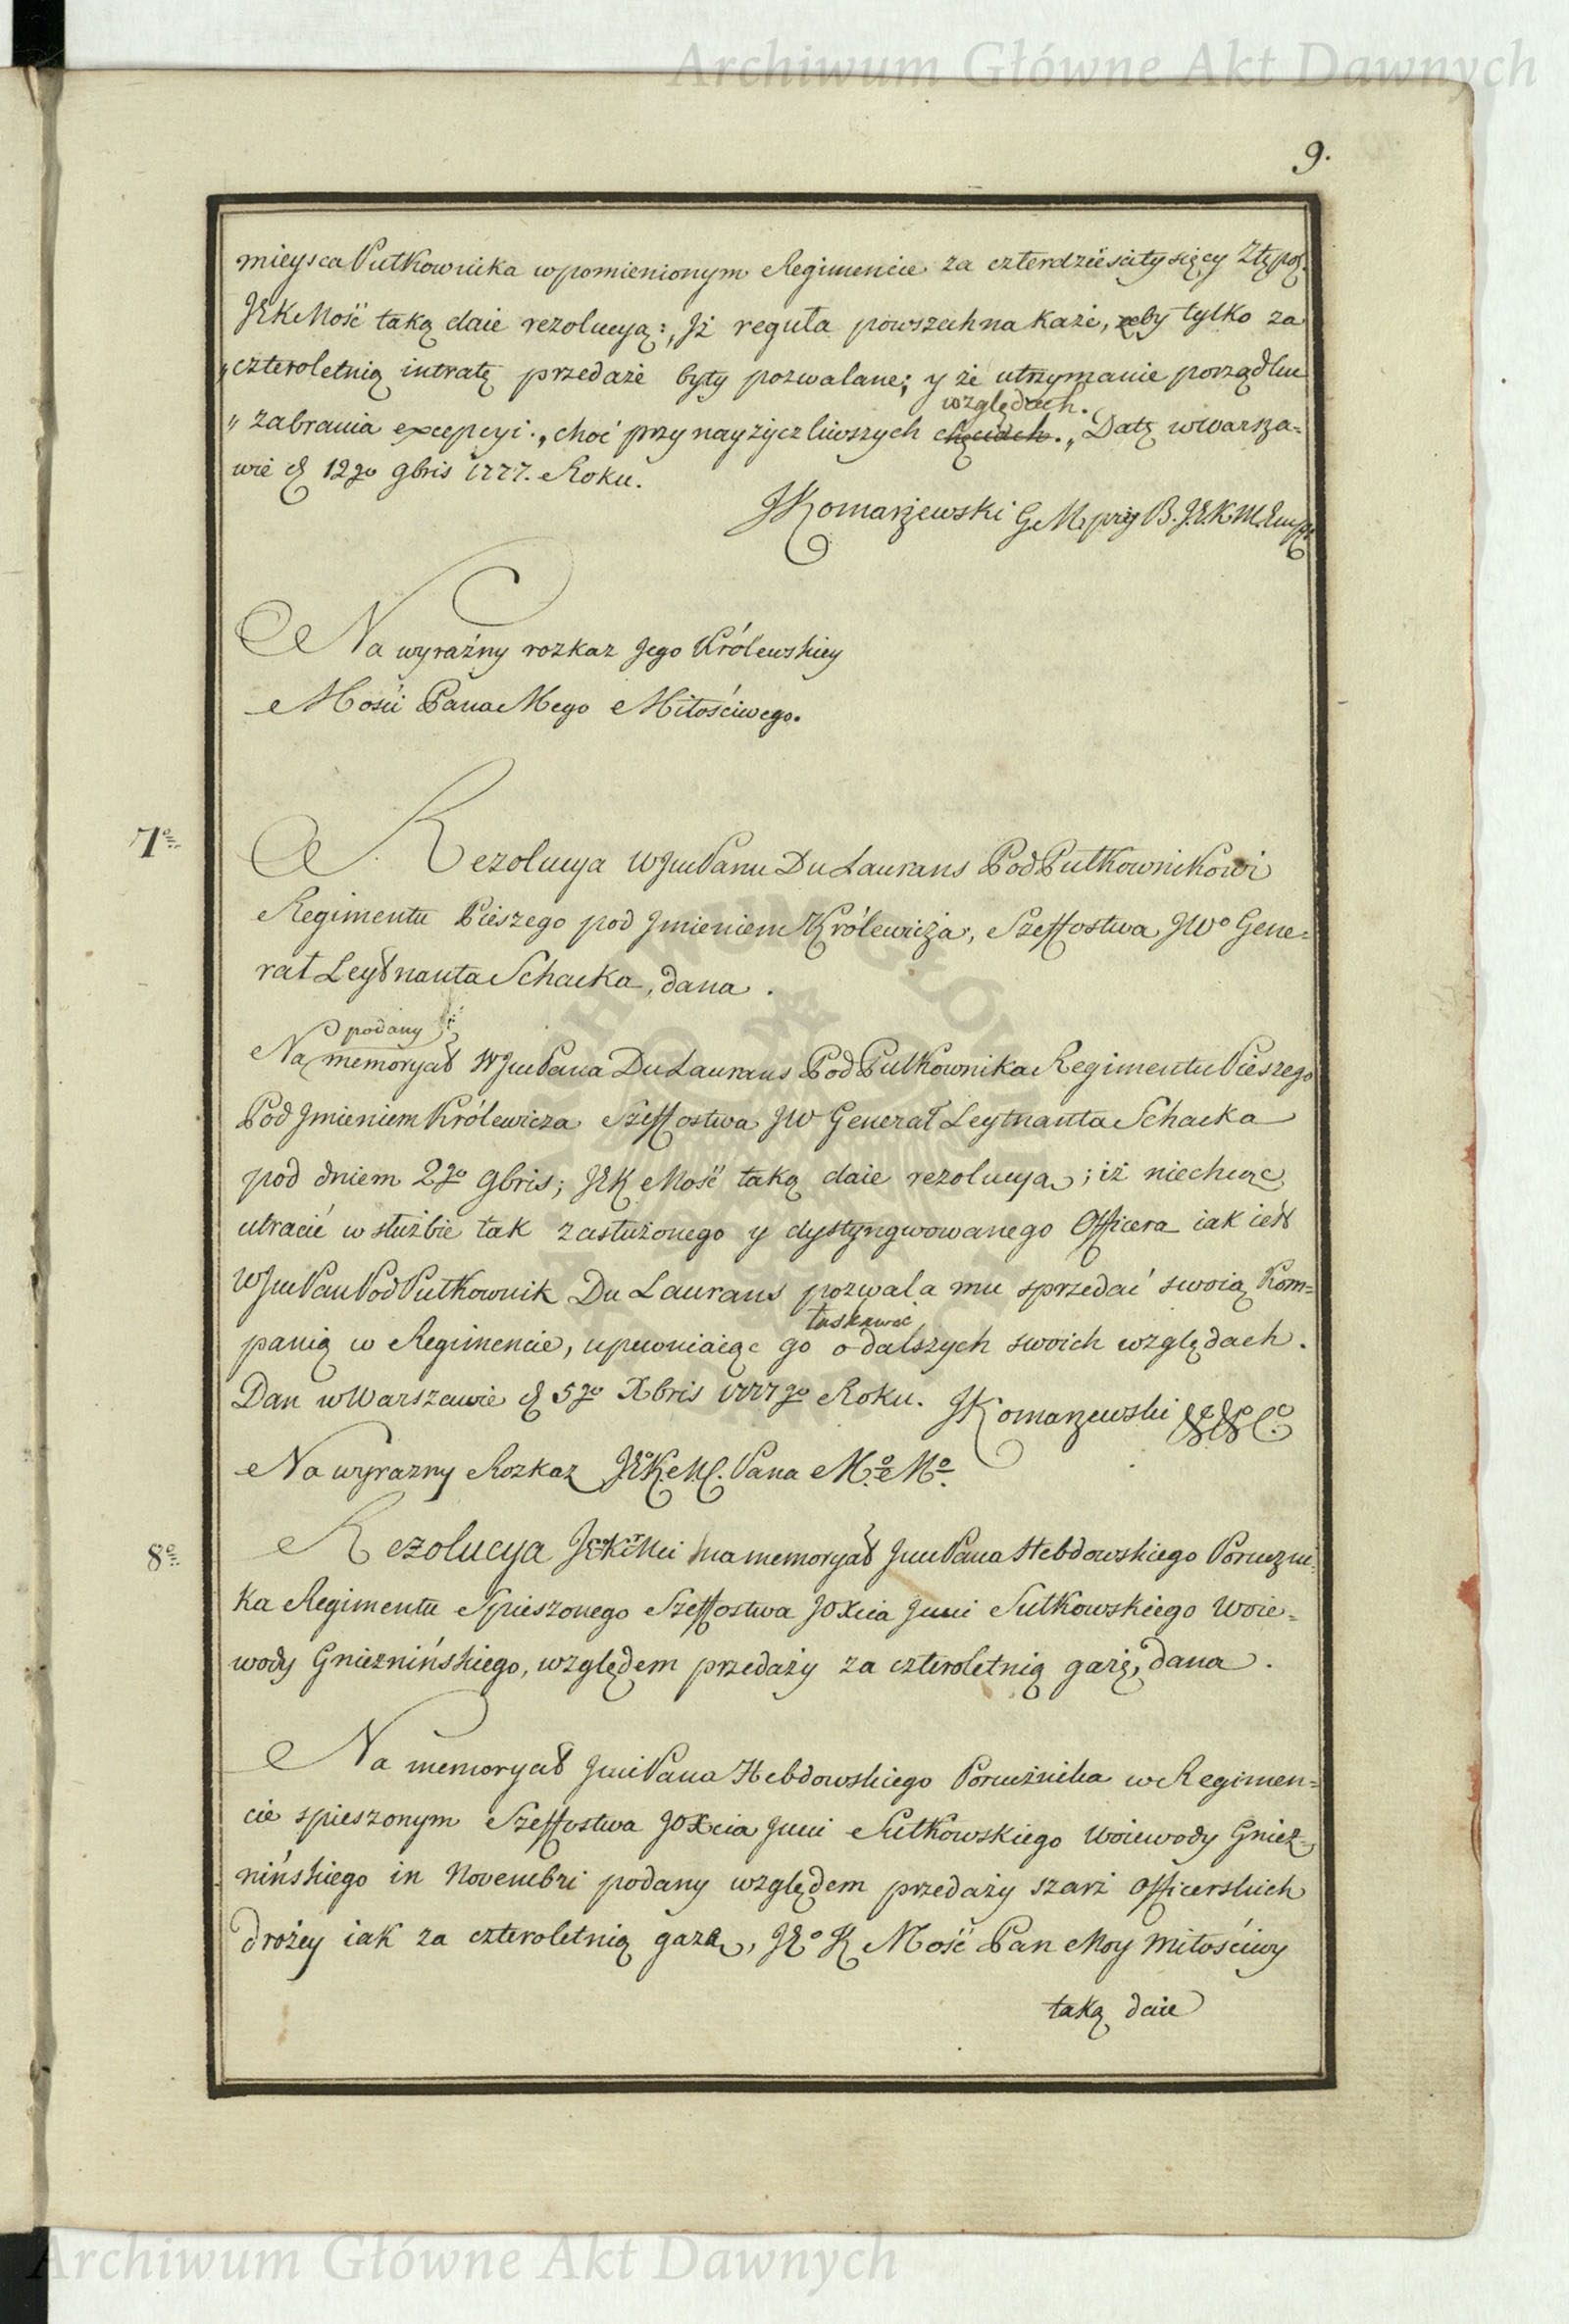 Archiwum Główne Akt Dawnych
9.
mieysca Pułkownika w pomienionym Regimencie za czterdzieści tysięcy Złł pol.
JKMość taką daie rezolucyą: „Jż reguła powszechna każe, żeby tylko za
„czteroletnią intratę przedaże były pozwalane; y że utrzymanie porządku
względach.
„zabrania excepcyi., choć przy nayżyczliwszych chęciach. „Datę w Warsza=
wie d. 12go 9bris 1777. Roku.
JKomarzewski G M przy B. J.K.M.
Na wyraźny rozkaz Jego Królewskiey
Mości Pana Mego Miłościwego.
7o
Rezolucya WJmPanu Du Laurans PodPułkownikowi
Regimentu Pieszego pod Jmieniem Królewicza, Szeffostwa JWo Gene=
rał Leytnanta Schacka, dana.
podany
Na memoryał WJmPana Du Laurans PodPułkownika Regimentu Pieszego
Pod Jmieniem Królewicza Szeffostwa JW Generał Leytnanta Schacka
pod dniem 2go 9bris; JKMość taką daie rezolucyą; iż niechcąc
utracić w służbie tak zasłużonego y dystyngwowanego Officera iak iest
WJmPan PodPułkownik Du Laurans pozwala mu sprzedać swoią Kom=
łaskawie
panią w Regimencie, upewniaiąc go o dalszych swoich względach.
Dan w Warszawie d 5go Xbris 1777go Roku. JKomarzewski
Na wyrazny Rozkaz JKMc. Pana Mo Mo.
8o
Rezolucya JKMci na memoryał JmPana Hebdowskiego Poruczni=
ka Regimentu Spieszonego Szeffostwa JOXcia Jmci Sułkowskiego Woie=
wody Gnieznińskiego, względem przedaży za czteroletnią gażę, dana.
Na memoryał JmciPana Hebdowskiego Porucznika w Regimen=
cie spieszonym Szeffostwa JOXcia Jmci Sułkowskiego Woiewody Gniez=
nińskiego in Novembri podany względem przedaży szarż Officerskich
drożey iak za czteroletnią gażą, JKo Mość Pan Moy Miłościwy
taką daie
Archiwum Główne Akt Dawnych